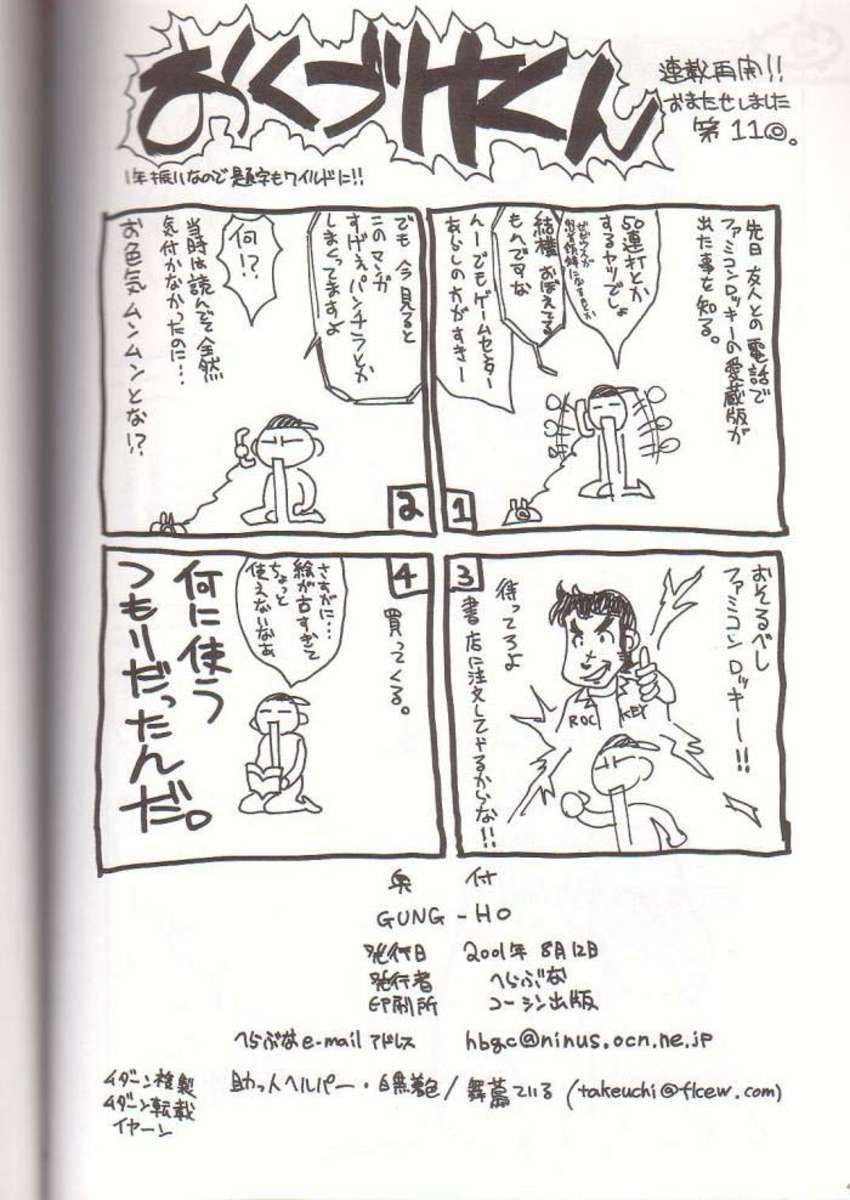 おくづけくん
連載再開!!
おまたせしました
第11回。
1年振りなので題字もワイルドに!!
先日 友人との電話で
ファミコンロッキーの愛蔵版が
出た事を知る。
50連打とか
するヤツでしょ
結構 おぼえてる
もんですな
んーでもゲームセンター
あらしの方がすきー
1
でも 今見ると
このマンガ
すげぇパンチラとか
しまくってますよ
何!?
当時は読んでて全然
気付かなかったのに…
お色気ムンムンとな!?
2
おそるべし
ファミコンロッキー!!
ROC KEY
待ってろよ
書店に注文してやるからな!!
3
買ってくる。
さすがに…
絵が古すぎて
ちょっと
使えないなぁ
何に使う
つもりだったんだ。
4
奥 付
GUNG-HO
発行日 2001年 8月12日
発行者 へらぶな
印刷所 コーシン出版
へらぶなe-mailアドレス hbgc@ninus.ocn.ne.jp
助っ人ヘルパー・白黒着色/舞蔦ている (takeuchi@flcew.com)
ムダーン複製
ムダーン転載
イヤーン